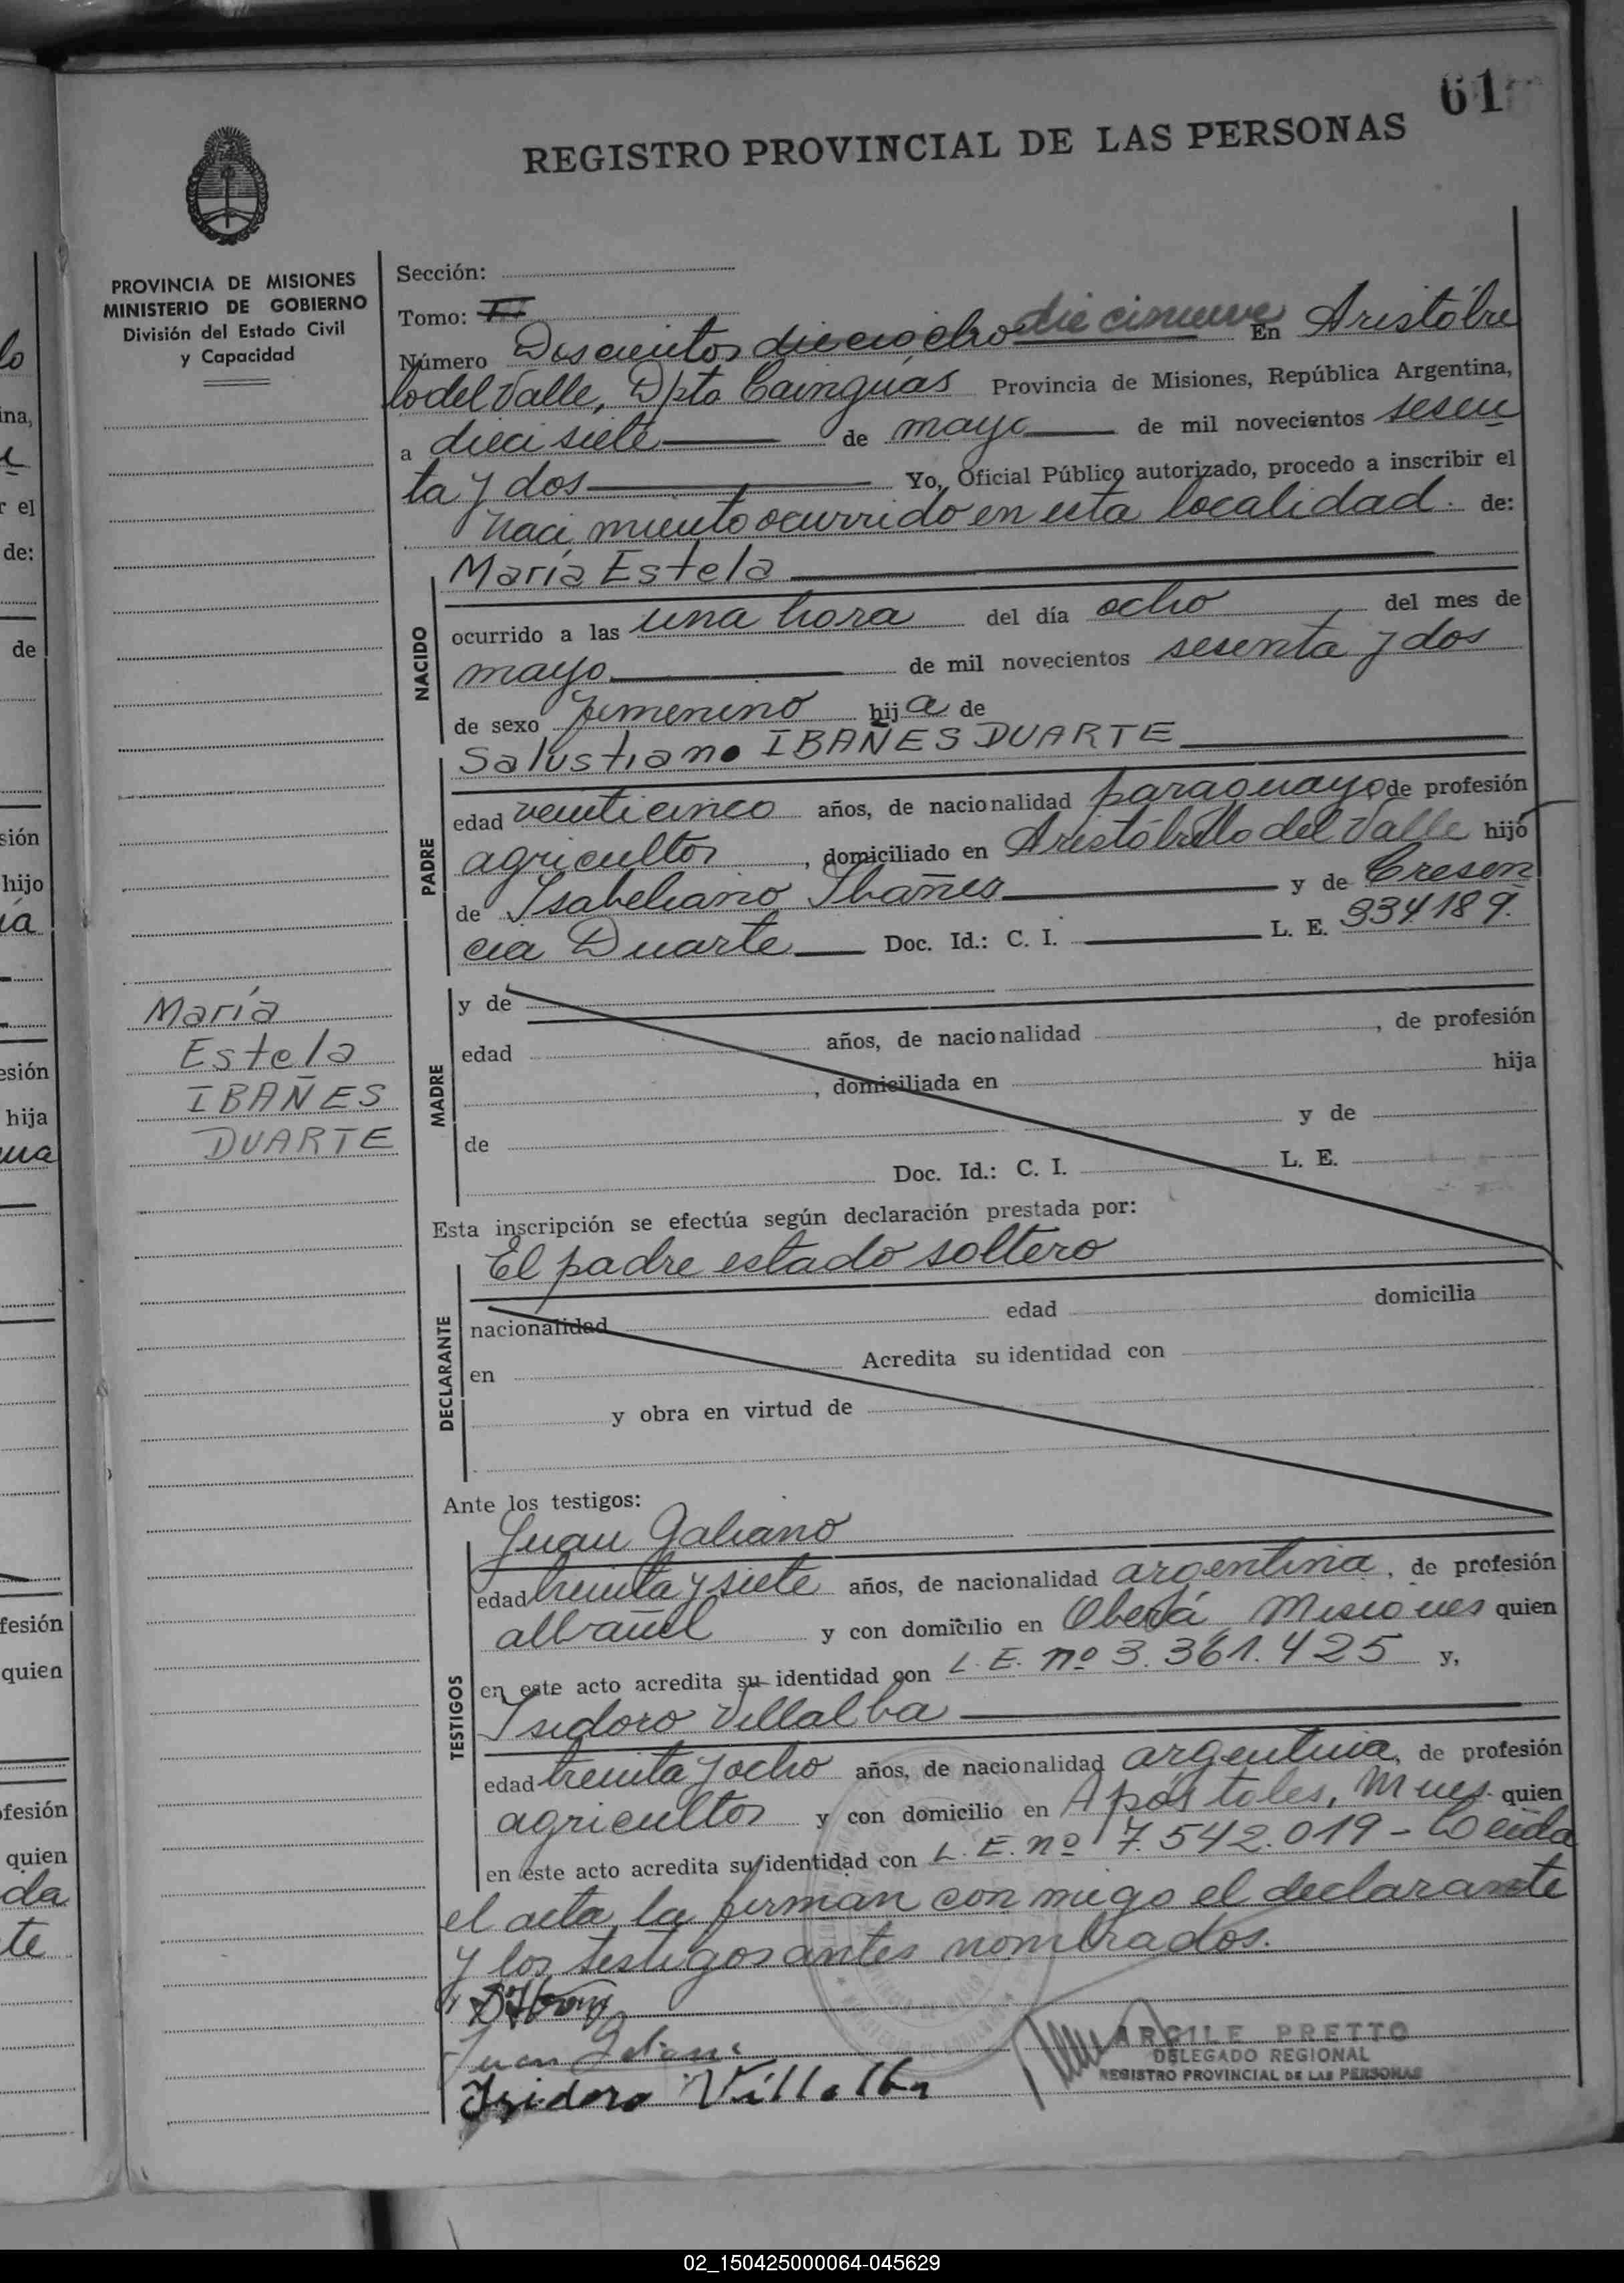 61
REGISTRO PROVINCIAL DE LAS PERSONAS
PROVINCIA DE MISIONES
MINISTERIO DE GOBIERNO
División del Estado Civil
y Capacidad
Sección:
Tomo: II
Número Doscientos dieciocho diecinueve En Aristóbu
lo del Valle, Dpto Cainguás Provincia de Misiones, República Argentina,
a dieci siete de mayo de mil novecientos sesen
ta y dos Yo, Oficial Público autorizado, procedo a inscribir el
naci miento ocurrido en esta localidad. de:
María Estela
NACIDO
ocurrido a las una hora del día ocho del mes de
mayo de mil novecientos sesenta y dos
de sexo femenino hija de
Salustiano IBAÑES DUARTE
PADRE
edad veinticinco años, de nacionalidad paraguayo de profesión
agricultor, domiciliado en Aristóbulo del Valle hijo
de Isabeliano Ibañes y de Cresen
cia Duarte Doc. Id.: C. I. L. E. 934189.
María
Estela
IBAÑES
DUARTE
MADRE
y de
edad años, de nacionalidad , de profesión
, domiciliada en hija
de y de
Doc. Id.: C. I. L. E.
Esta inscripción se efectúa según declaración prestada por:
El padre estado soltero
DECLARANTE
nacionalidad edad domicilia
en Acredita su identidad con
y obra en virtud de
Ante los testigos:
Juan Galiano
TESTIGOS
edad treinta y siete años, de nacionalidad argentina, de profesión
albañil y con domicilio en Oberá, Misiones quien
en este acto acredita su identidad con L. E. nº 3.361.425 y,
Isidoro Villalba
edad treinta y ocho años, de nacionalidad argentina, de profesión
agricultor y con domicilio en Apóstoles, Mnes. quien
en este acto acredita su identidad con L. E. nº 7.542.019 - Leída
el acta, la firman con migo el declarante
y los testigos antes nombrados.
Juan Galiano
Isidoro Villalba
ARGILE PRETTO
DELEGADO REGIONAL
REGISTRO PROVINCIAL DE LAS PERSONAS
02_150425000064-045629